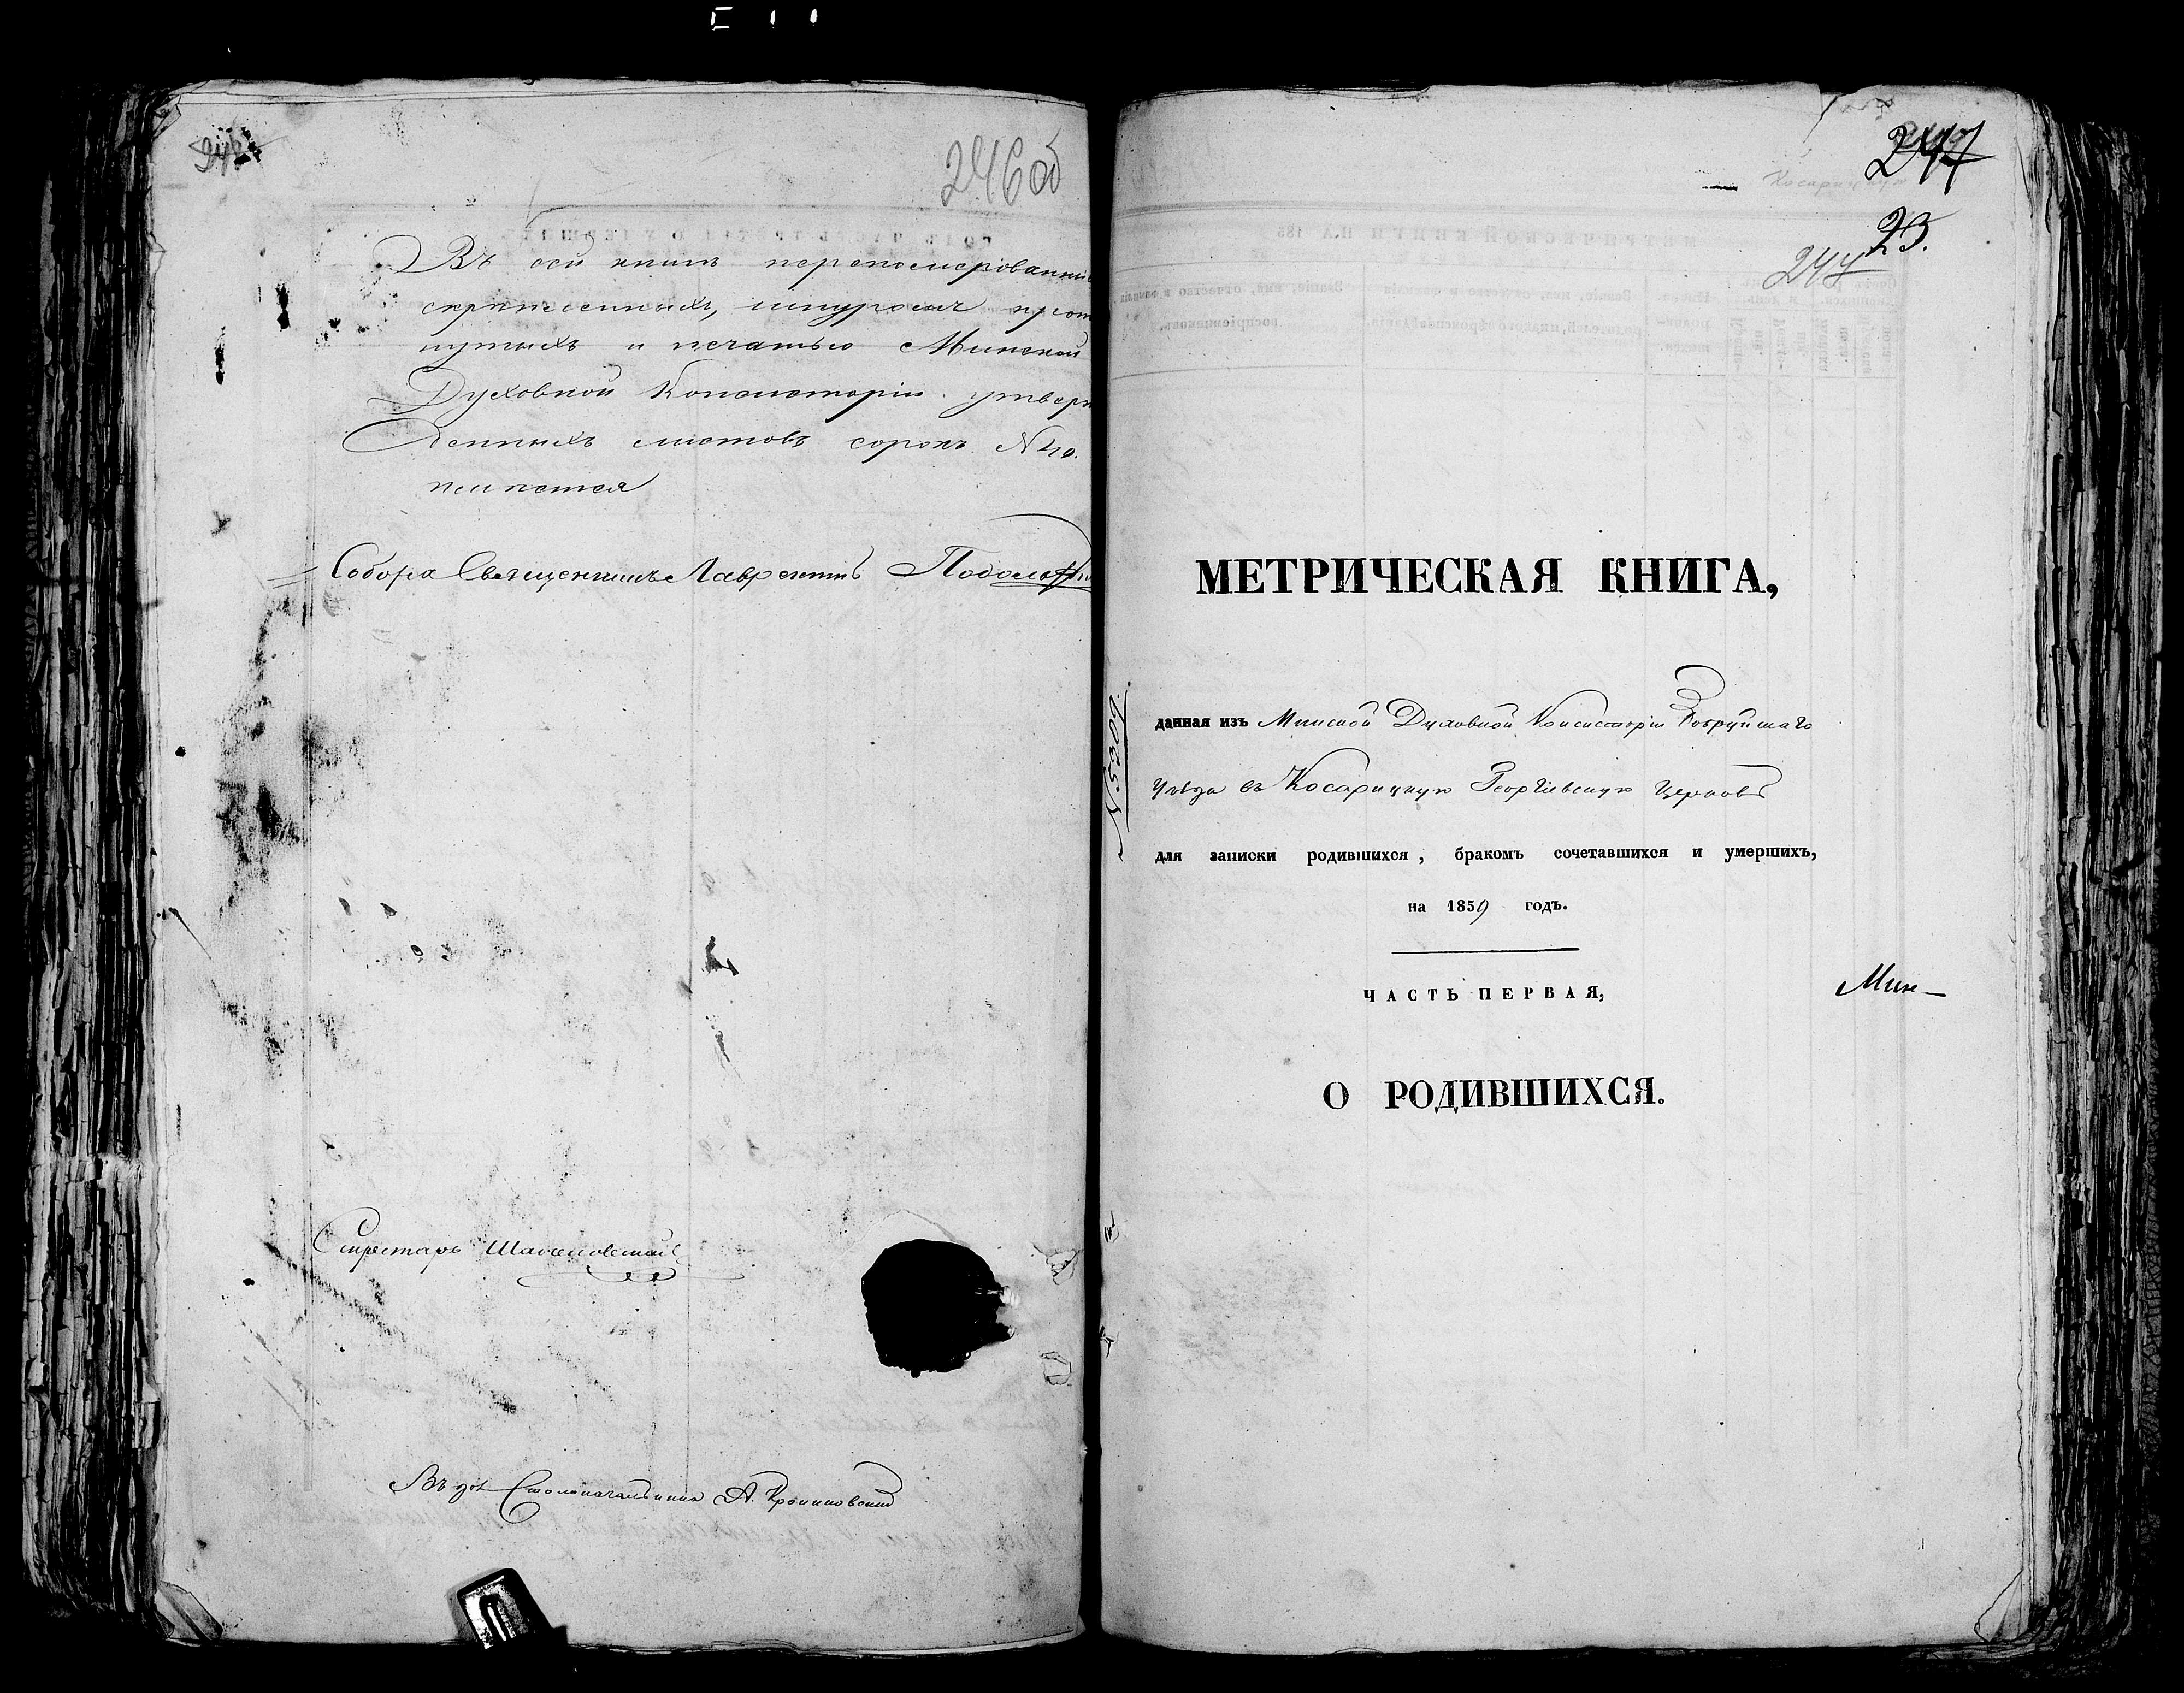 246об
Въ сей книгѣ перенумерованныхъ
скрѣпленныхъ, шнуромъ прош
нутыхъ и печатью Минской
Духовной Консисторіи утверж
денныхъ листовъ сорокъ N 40.
имѣется
Собора Священникъ Лаврентій
Секретарь
Въ дол. Столоначальника А.
247
23.
244
МЕТРИЧЕСКАЯ КНИГА,
N. 5209.
данная изъ Минской Духовной Консисторіи Бобруйскаго
Уѣзда въ Косарицкую Георгіевскую Церковь
для записки родившихся, бракомъ сочетавшихся и умершихъ,
на 1859 годъ.
ЧАСТЬ ПЕРВАЯ,
Мин-
О РОДИВШИХСЯ.